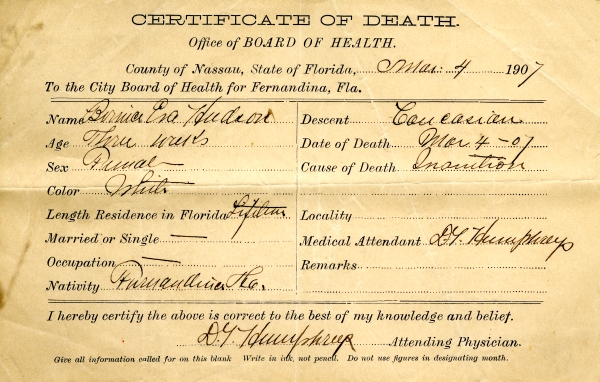 CERTIFICATE OF DEATH.
Office of BOARD OF HEALTH.
County of Nassau, State of Florida, Mar. 4 1907
To the City Board of Health for Fernandina, Fla.
Name Eva Hudson
Age Three weeks
Sex Female
Color White
Length Residence in Florida Lifetime
Married or Single —
Occupation —
Nativity Fernandina Fla.
Descent Caucasian
Date of Death Mar. 4 - 07
Cause of Death Inanition
Locality
Medical Attendant D.G. Humphreys
Remarks
I hereby certify the above is correct to the best of my knowledge and belief.
Humphreys Attending Physician.
Give all information called for on this blank Write in ink, not pencil. Do not use figures in designating month.